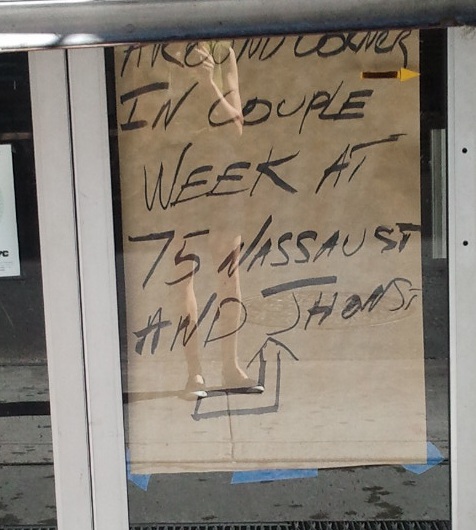 AROUND CORNER
IN COUPLE
WEEK AT
75 NASSAU ST
AND JHON ST